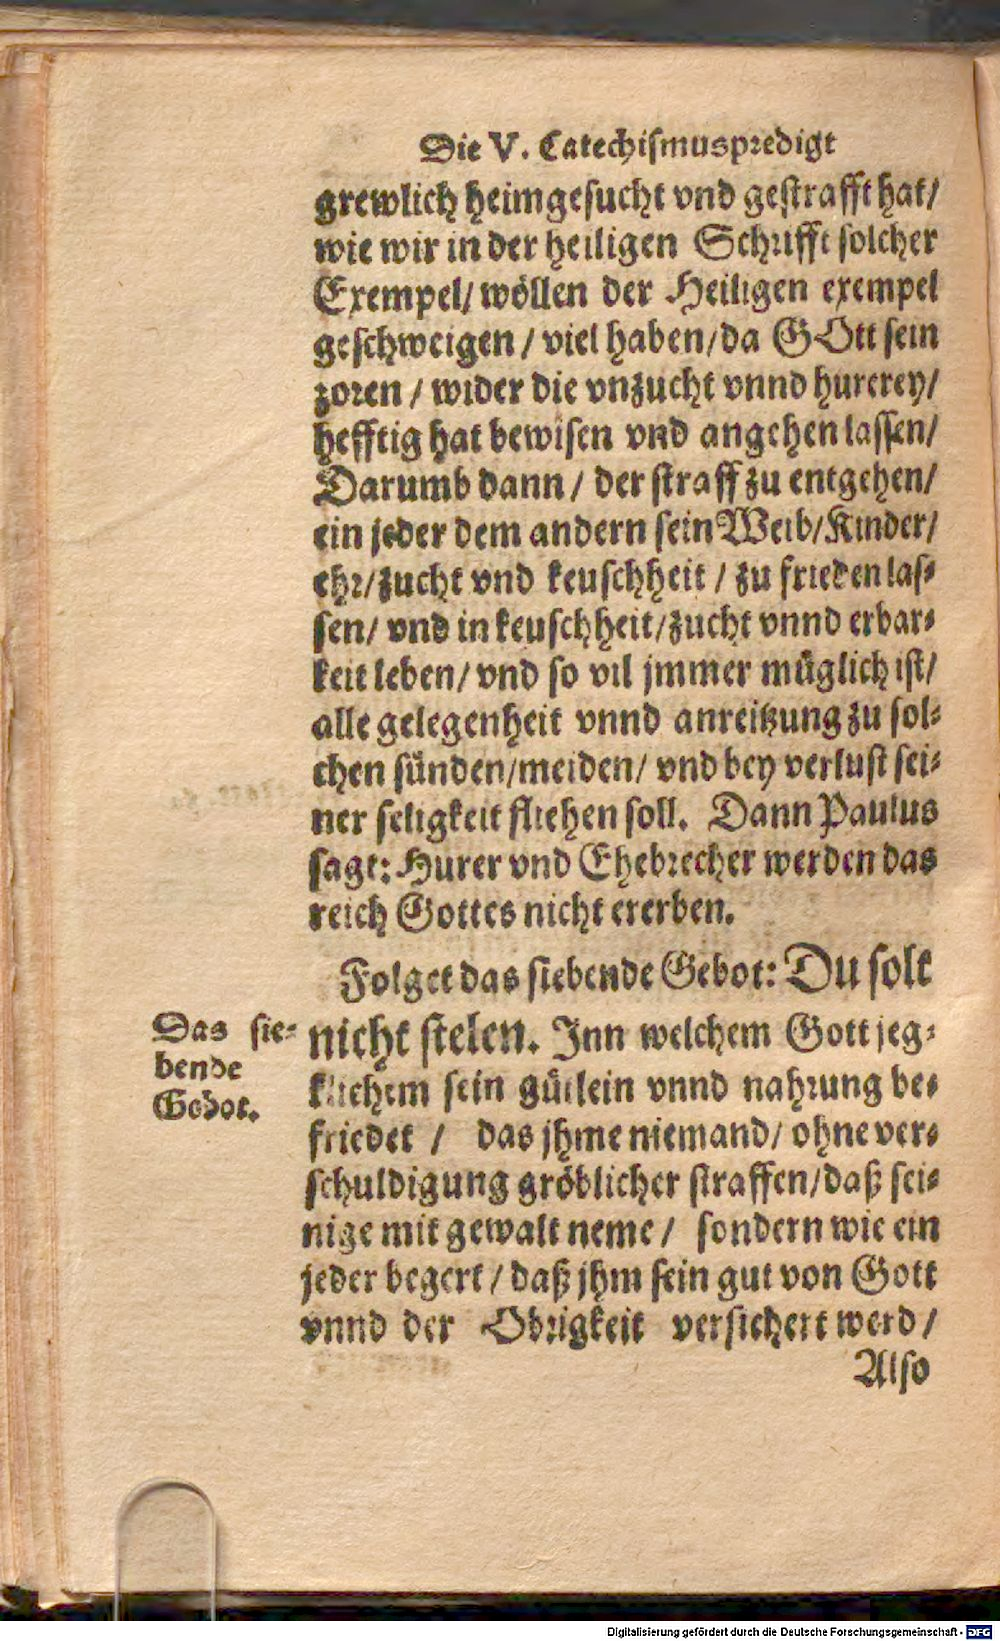 Die V. Catechiſmuspredigt
grewlich heimgeſucht vnd geſtrafft hat/
wie wir in der heiligen Schrifft ſolcher
Exempel/ wöllen der Heiligen exempel
geſchweigen / viel haben/da GOtt ſein
zoren / wider die vnzucht vnnd hurerey/
hefftig hat bewiſen vnd angehen laſſen/
Darumb dann / der ſtraff zu entgehen/
ein jeder dem andern ſein Weib/Kinder/
ehr/zucht vnd keuſchheit / zu frieden laſ⸗
ſen/ vnd in keuſchheit/zucht vnnd erbar⸗
keit leben/ vnd ſo vil jmmer müglich iſt/
alle gelegenheit vnnd anreitzung zu ſol⸗
chen ſünden/meiden/ vnd bey verluſt ſei⸗
ner ſeligkeit fliehen ſoll. Dann Paulus
ſagt: Hurer vnd Ehebrecher werden das
reich Gottes nicht ererben.
Folget das ſiebende Gebot: Du ſolt
Das ſie⸗
bende
Gebot.
nicht ſtelen. Inn welchem Gott jeg⸗
klichem ſein gütlein vnnd nahrung be⸗
friedet / das jhme niemand/ ohne ver⸗
ſchuldigung gröblicher ſtraffen/daß ſei⸗
nige mit gewalt neme / ſondern wie ein
jeder begert / daß jhm ſein gut von Gott
vnnd der Obrigkeit verſichert werd /
Alſo
Digitalisierung gefördert durch die Deutsche Forschungsgemeinschaft - DFG